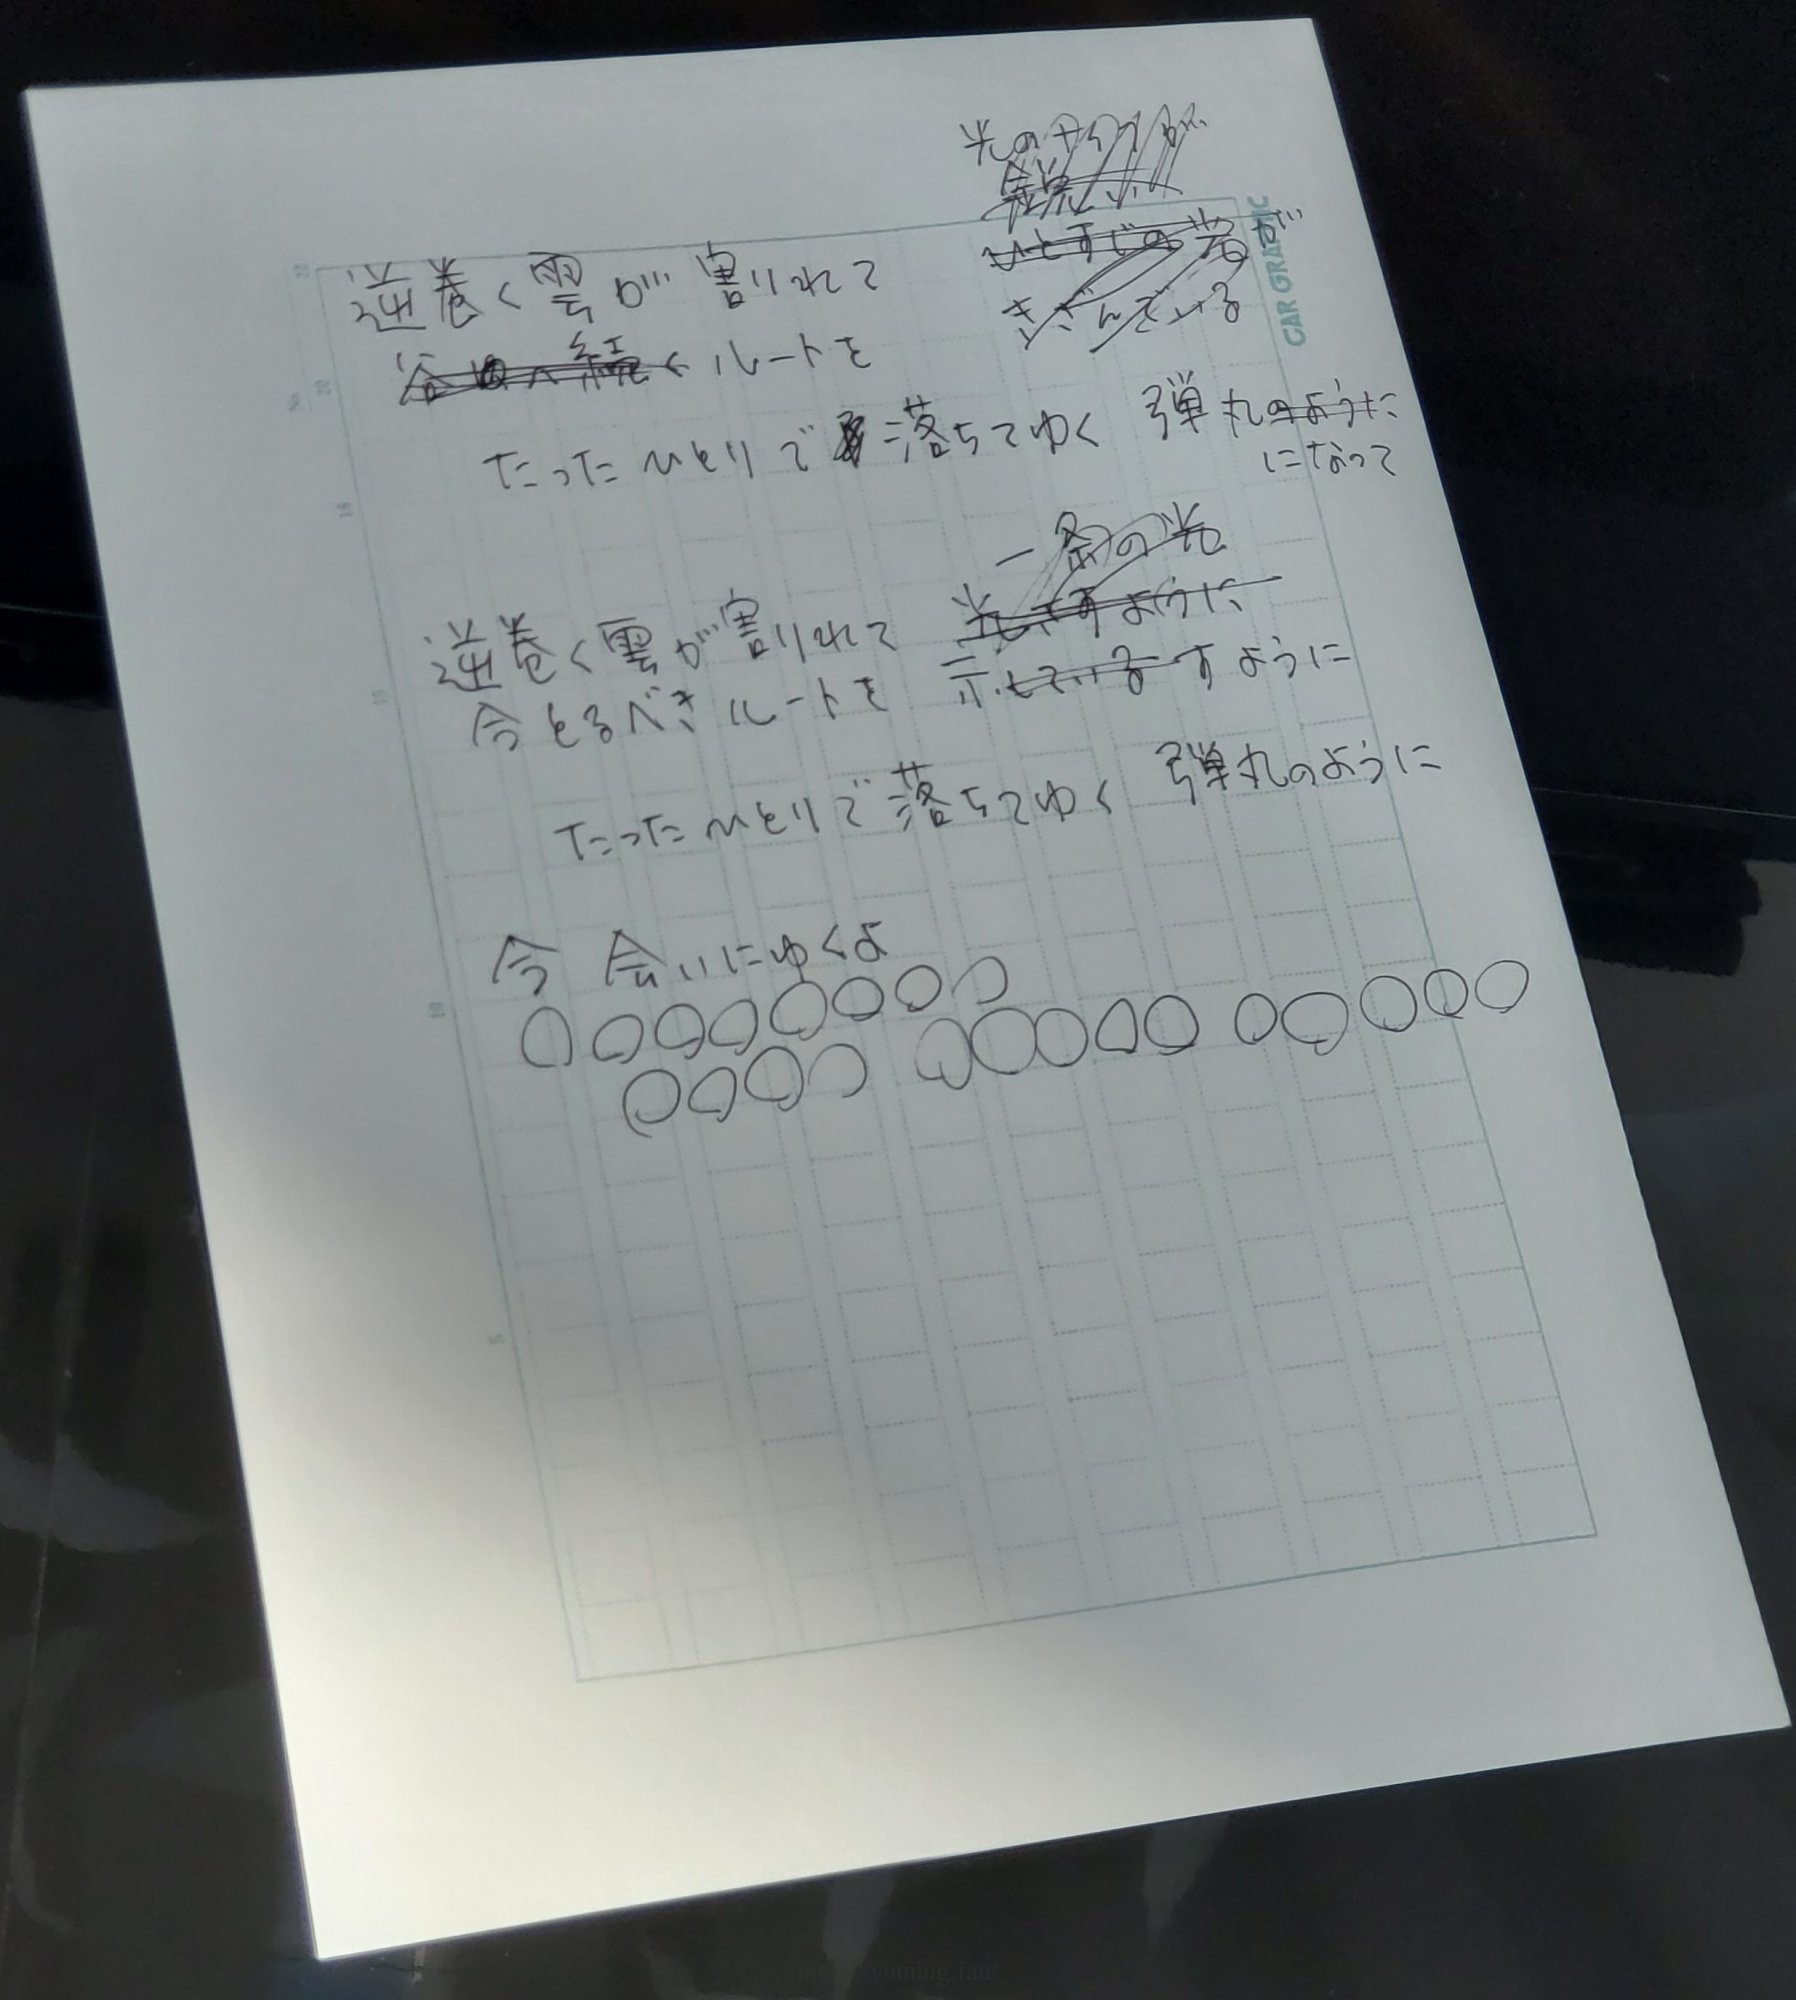 光の
ひとすじの光が
きざんでいる
逆巻く雲が割れて
続くルートを
たったひとりで落ちてゆく 弾丸のように
になって
一条の光
光さすように
逆巻く雲が割れて
今とるべきルートを 示している すように
たったひとりで落ちてゆく 弾丸のように
今 会いにゆくよ
〇〇〇〇〇〇〇〇
〇〇〇〇 〇〇〇〇〇 〇〇〇〇〇
CAR GRAPHIC
20
15
10
5
https://yuming.fan/